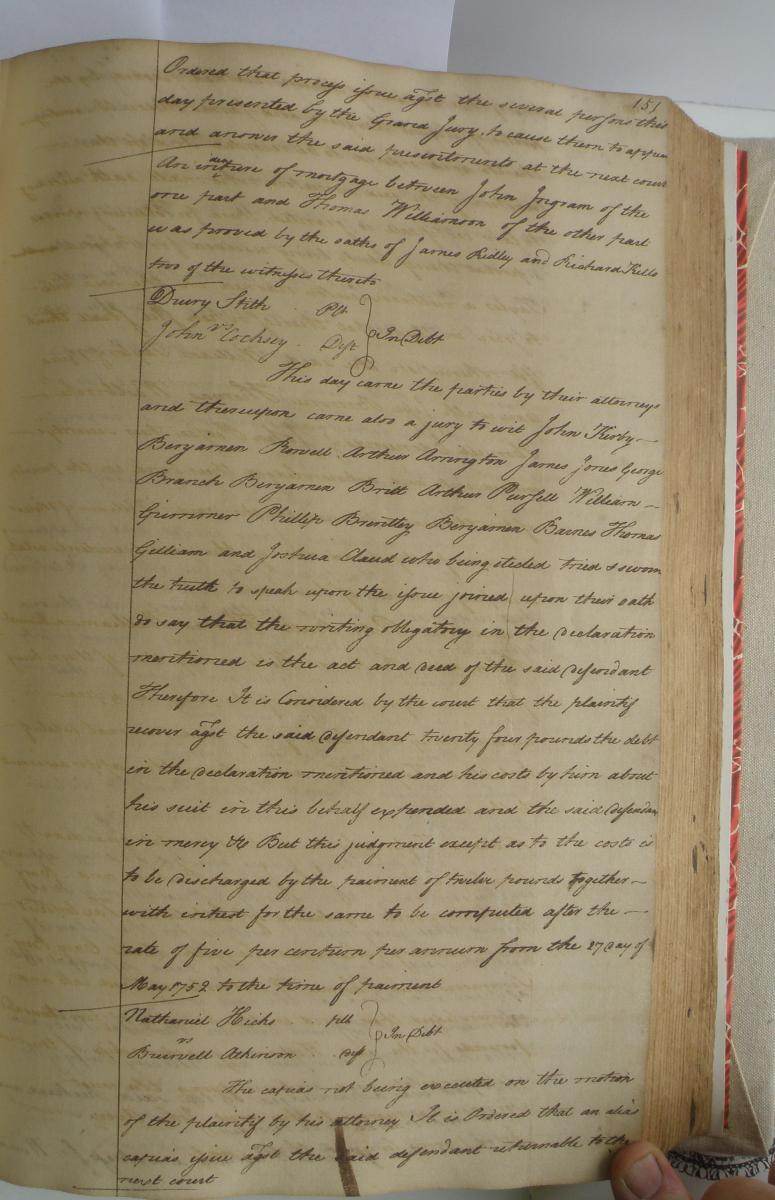 151
Ordered that process issue agst the several persons this
day presented by the Grand Jury, to cause them to appear
and answer the said presentments at the next court
An indture of mortgage between John Ingram of the
one part and Thomas Williamson of the other part
was proved by the oaths of James Ridley and Richard Kello
two of the witnesses thereto
Drury Stith Plt
vs In Debt
John Cocksey Deft
This day came the parties by their attorneys
and thereupon came also a jury to wit John Kirby
Benjamen Rowell Arthur Arrington James Jones George
Branch Benjamen Britt Arthur Pursell William
Gummer Phillip Brantley Benjamen Barnes Thomas
Gilliam and Joshua Claud who being elected tried & sworn
the truth to speak upon the issue joined upon their oath
do say that the writing obligatory in the declaration
mentioned is the act and deed of the said defendant
Therefore It is Considered by the court that the plaintif
recover agst the said defendant twenty four pounds the debt
in the declaration mentioned and his costs by him about
his suit in this behalf expended and the said defendant
in mercy &c But this judgment except as to the costs is
to be discharged by the paiment of twelve pounds together
with interest for the same to be computed after the
rate of five per centum per annum from the 27 day of
May 1752 to the time of paiment
Nathaniel Hicks plt
vs In Debt
Burwell Atkinson deft
The capias not being executed on the motion
of the plaintif by his attorney It is Ordered that an alias
capias issue agst the said defendant returnable to the
next court